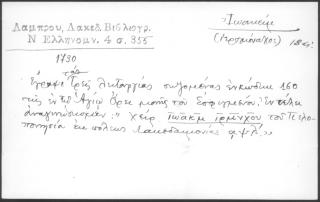 Λαμπρου, Λακεδ. Βιβλιογρ.
Ν Ελληνομν. 4 σ. 355
Ιωακείμ
(Ιερομόναχος) 18ος
1730
τὰς
Έγραψε Τρεῖς λειτουργίας σωζομένας ἐν κώδικι 160
τῆς ἐν τῷ Ἁγίῳ Ὄρει μονῆς τοῦ Εσφιγμένου. Ἐν τέλει
ἀναγινώσκομεν: "Χεὶρ Ἰωακεὶμ τοῦ Πελο-
ποννησίου ἐκ πόλεως Λακεδαιμονίας αψλ΄"